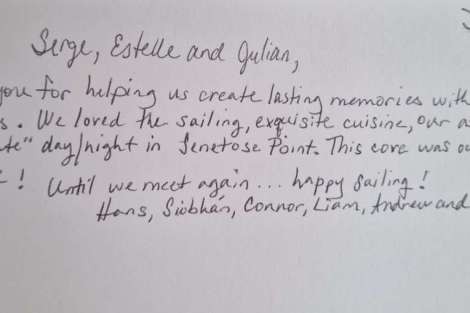 Serge, Estelle and Julian,
you for helping us create lasting memories with
s. We loved the sailing, exquisite cuisine, our a
te" day/night in Senetose Point. This cove was ou
! Until we meet again... happy sailing!
Hans, Siobhán, Connor, Liam, Andrew and